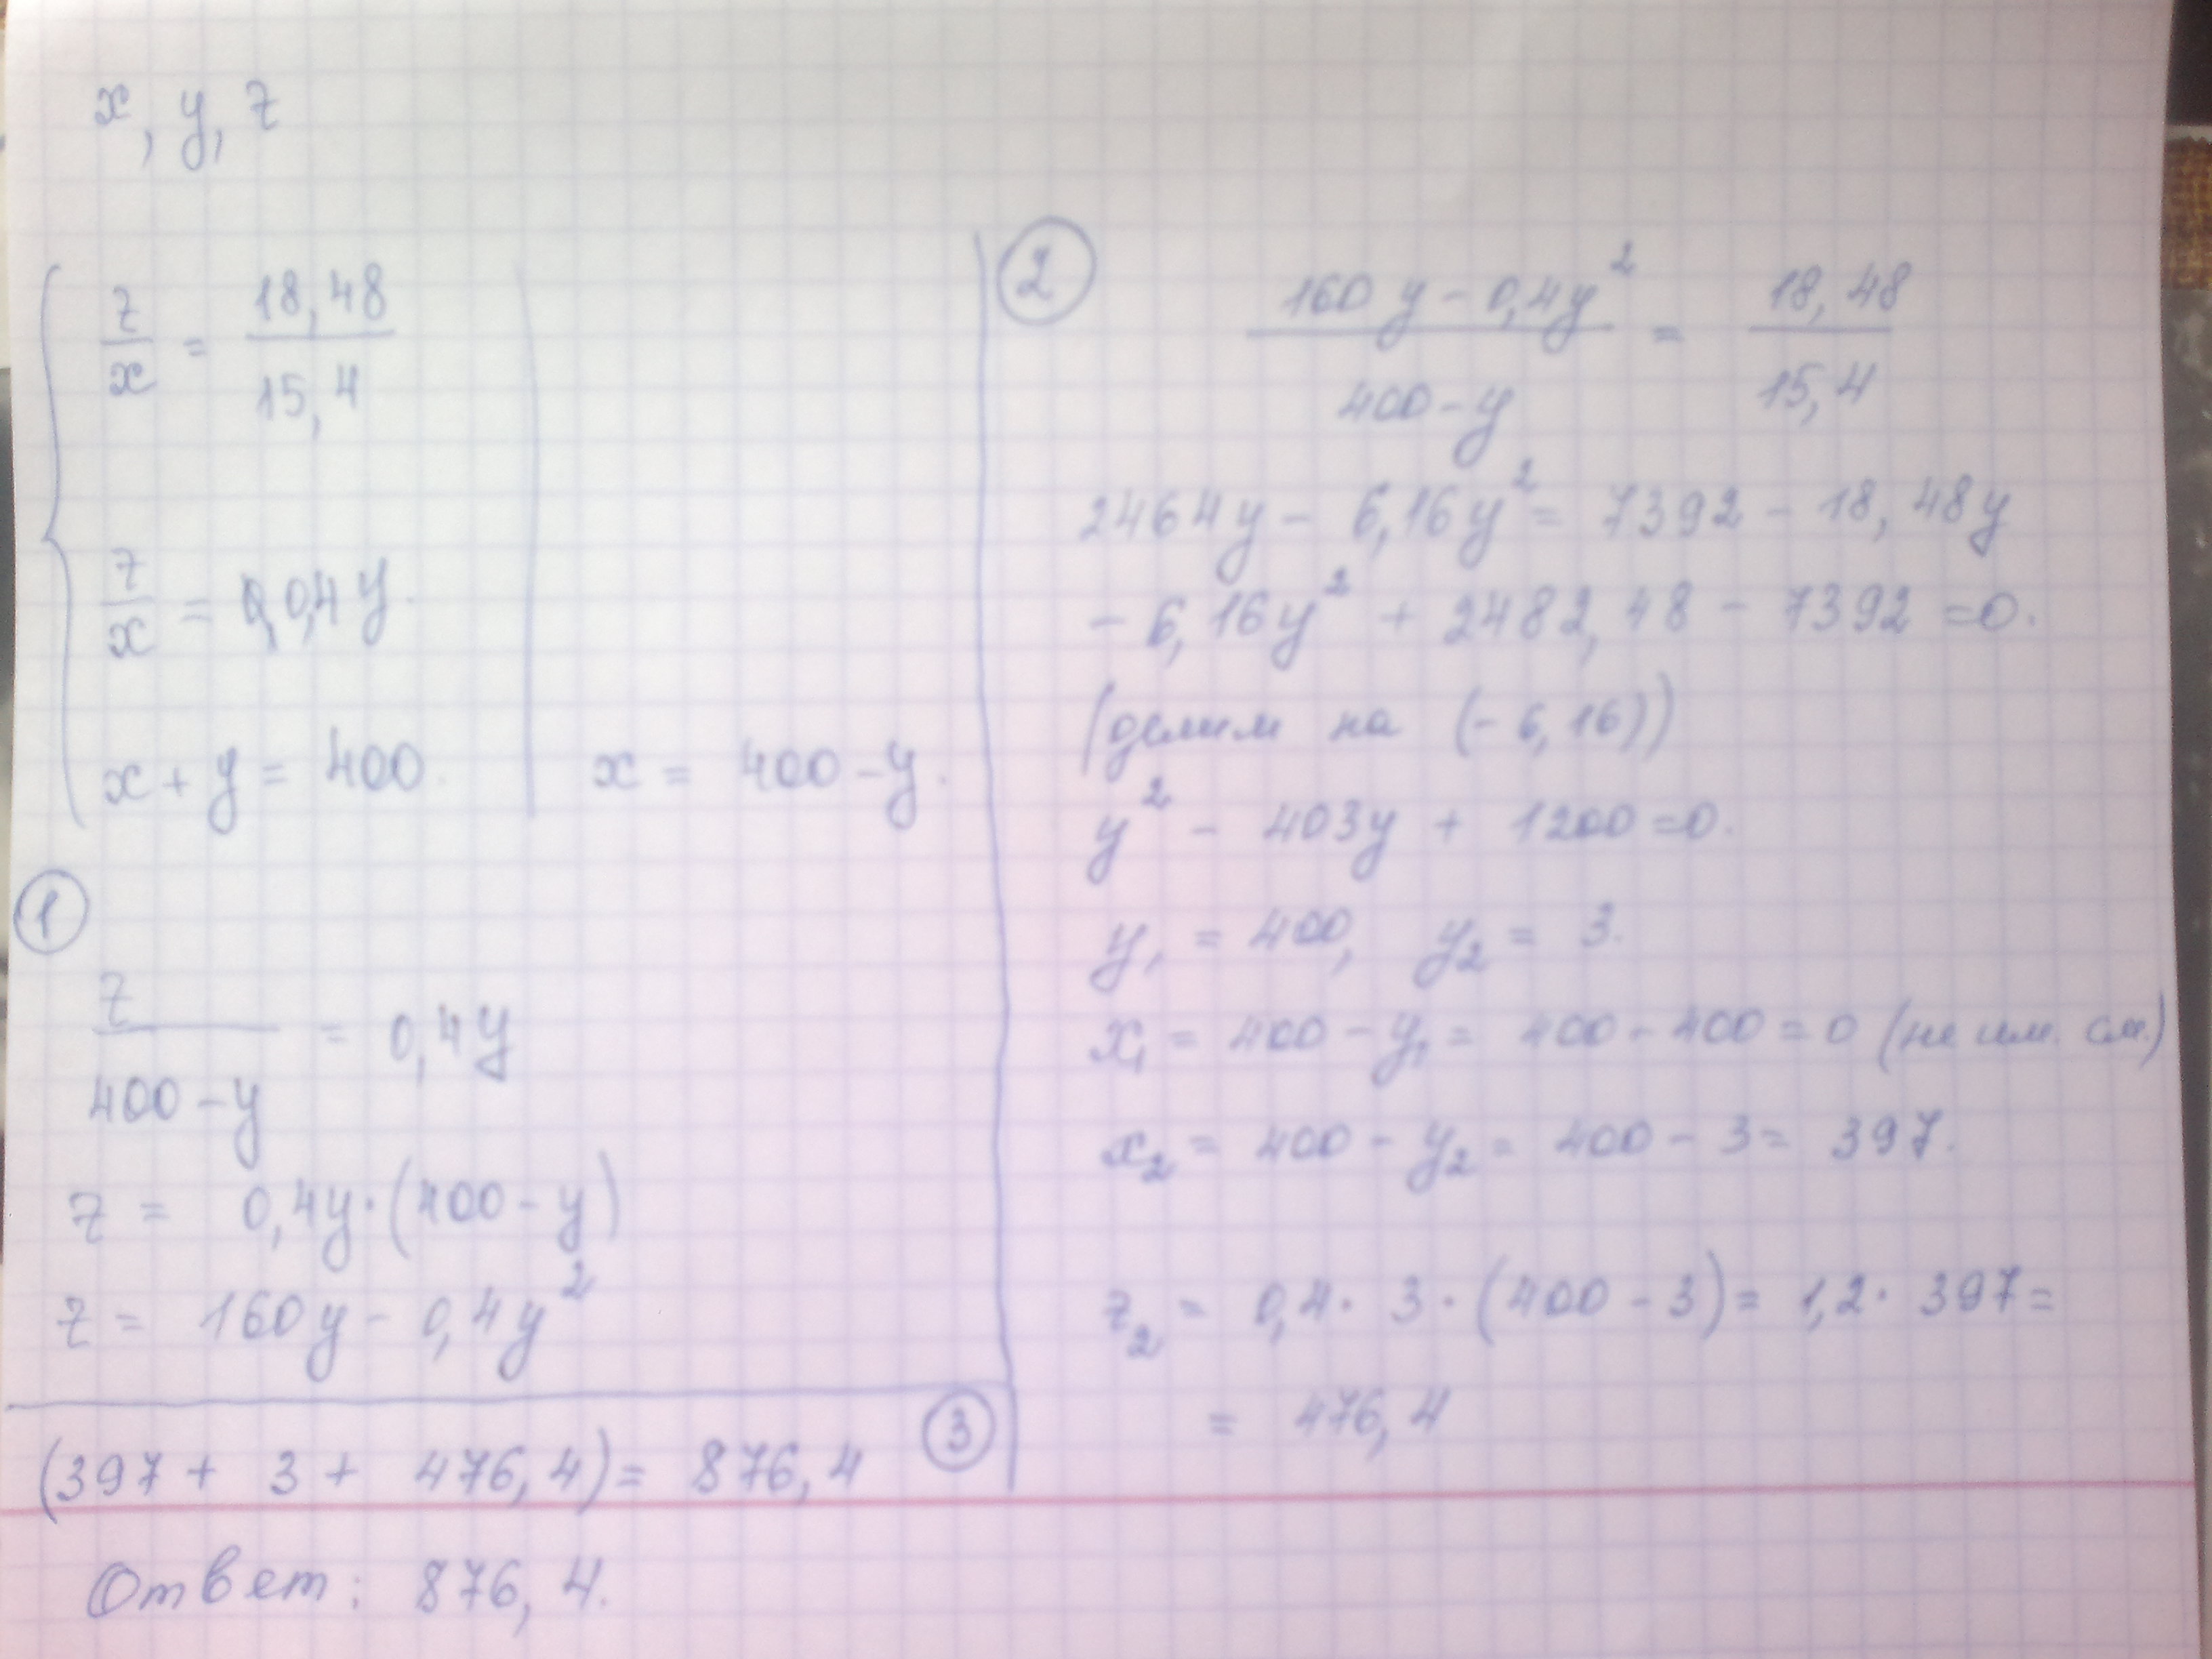 x, y, z
z/x = 18,48/15,4
z/x = 0,4y.
x + y = 400. | x = 400 - y.
①
z/(400 - y) = 0,4y
z = 0,4y · (400 - y)
z = 160y - 0,4y²
②
(160y - 0,4y²)/(400 - y) = 18,48/15,4
2464y - 6,16y² = 7392 - 18,48y
- 6,16y² + 2482,48 - 7392 = 0.
(делим на (- 6,16))
y² - 403y + 1200 = 0.
y₁ = 400, y₂ = 3.
x₁ = 400 - y₁ = 400 - 400 = 0 (не им. см.)
x₂ = 400 - y₂ = 400 - 3 = 397.
z₂ = 0,4 · 3 · (400 - 3) = 1,2 · 397 =
= 476,4
③
(397 + 3 + 476,4) = 876,4
Ответ: 876,4.